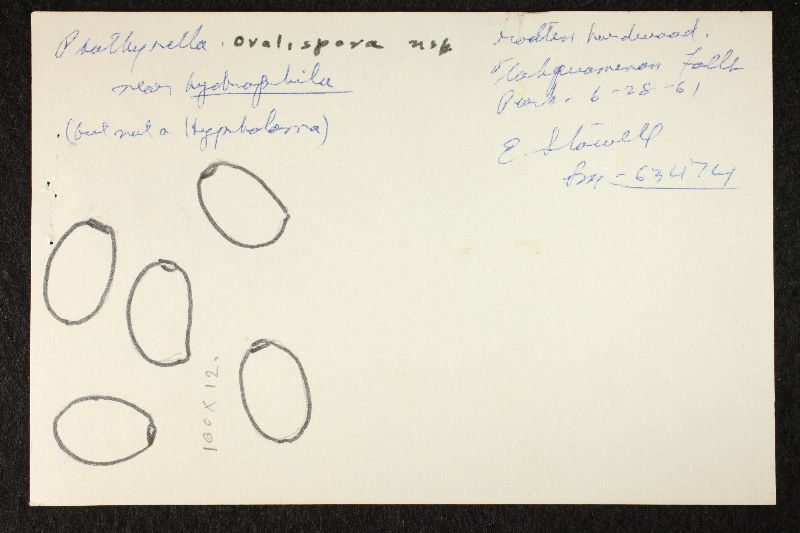 Psathyrella. ovalispora nsp
near hydrophila
(but not a Hypholoma)
rotten hardwood.
Tahquamenon Falls
Park - 6-28-61
E. Stowell
Sm - 63474
100 X 12.